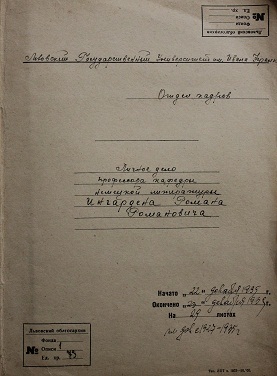 Львовский облгосархив
Фонд
Опись
Ед. хр.
№
Львовский Государственный Университет им. Ивана Франко
Отдел кадров
Личное дело
профессора кафедры
немецкой литературы
Ингардена Романа
Романовича
Начато „22" декабря 1935 г.
Окончено декабря г.
На 09 листах
Львовский облгосархив
Фонд
№ Опись 1
Ед. хр. 45